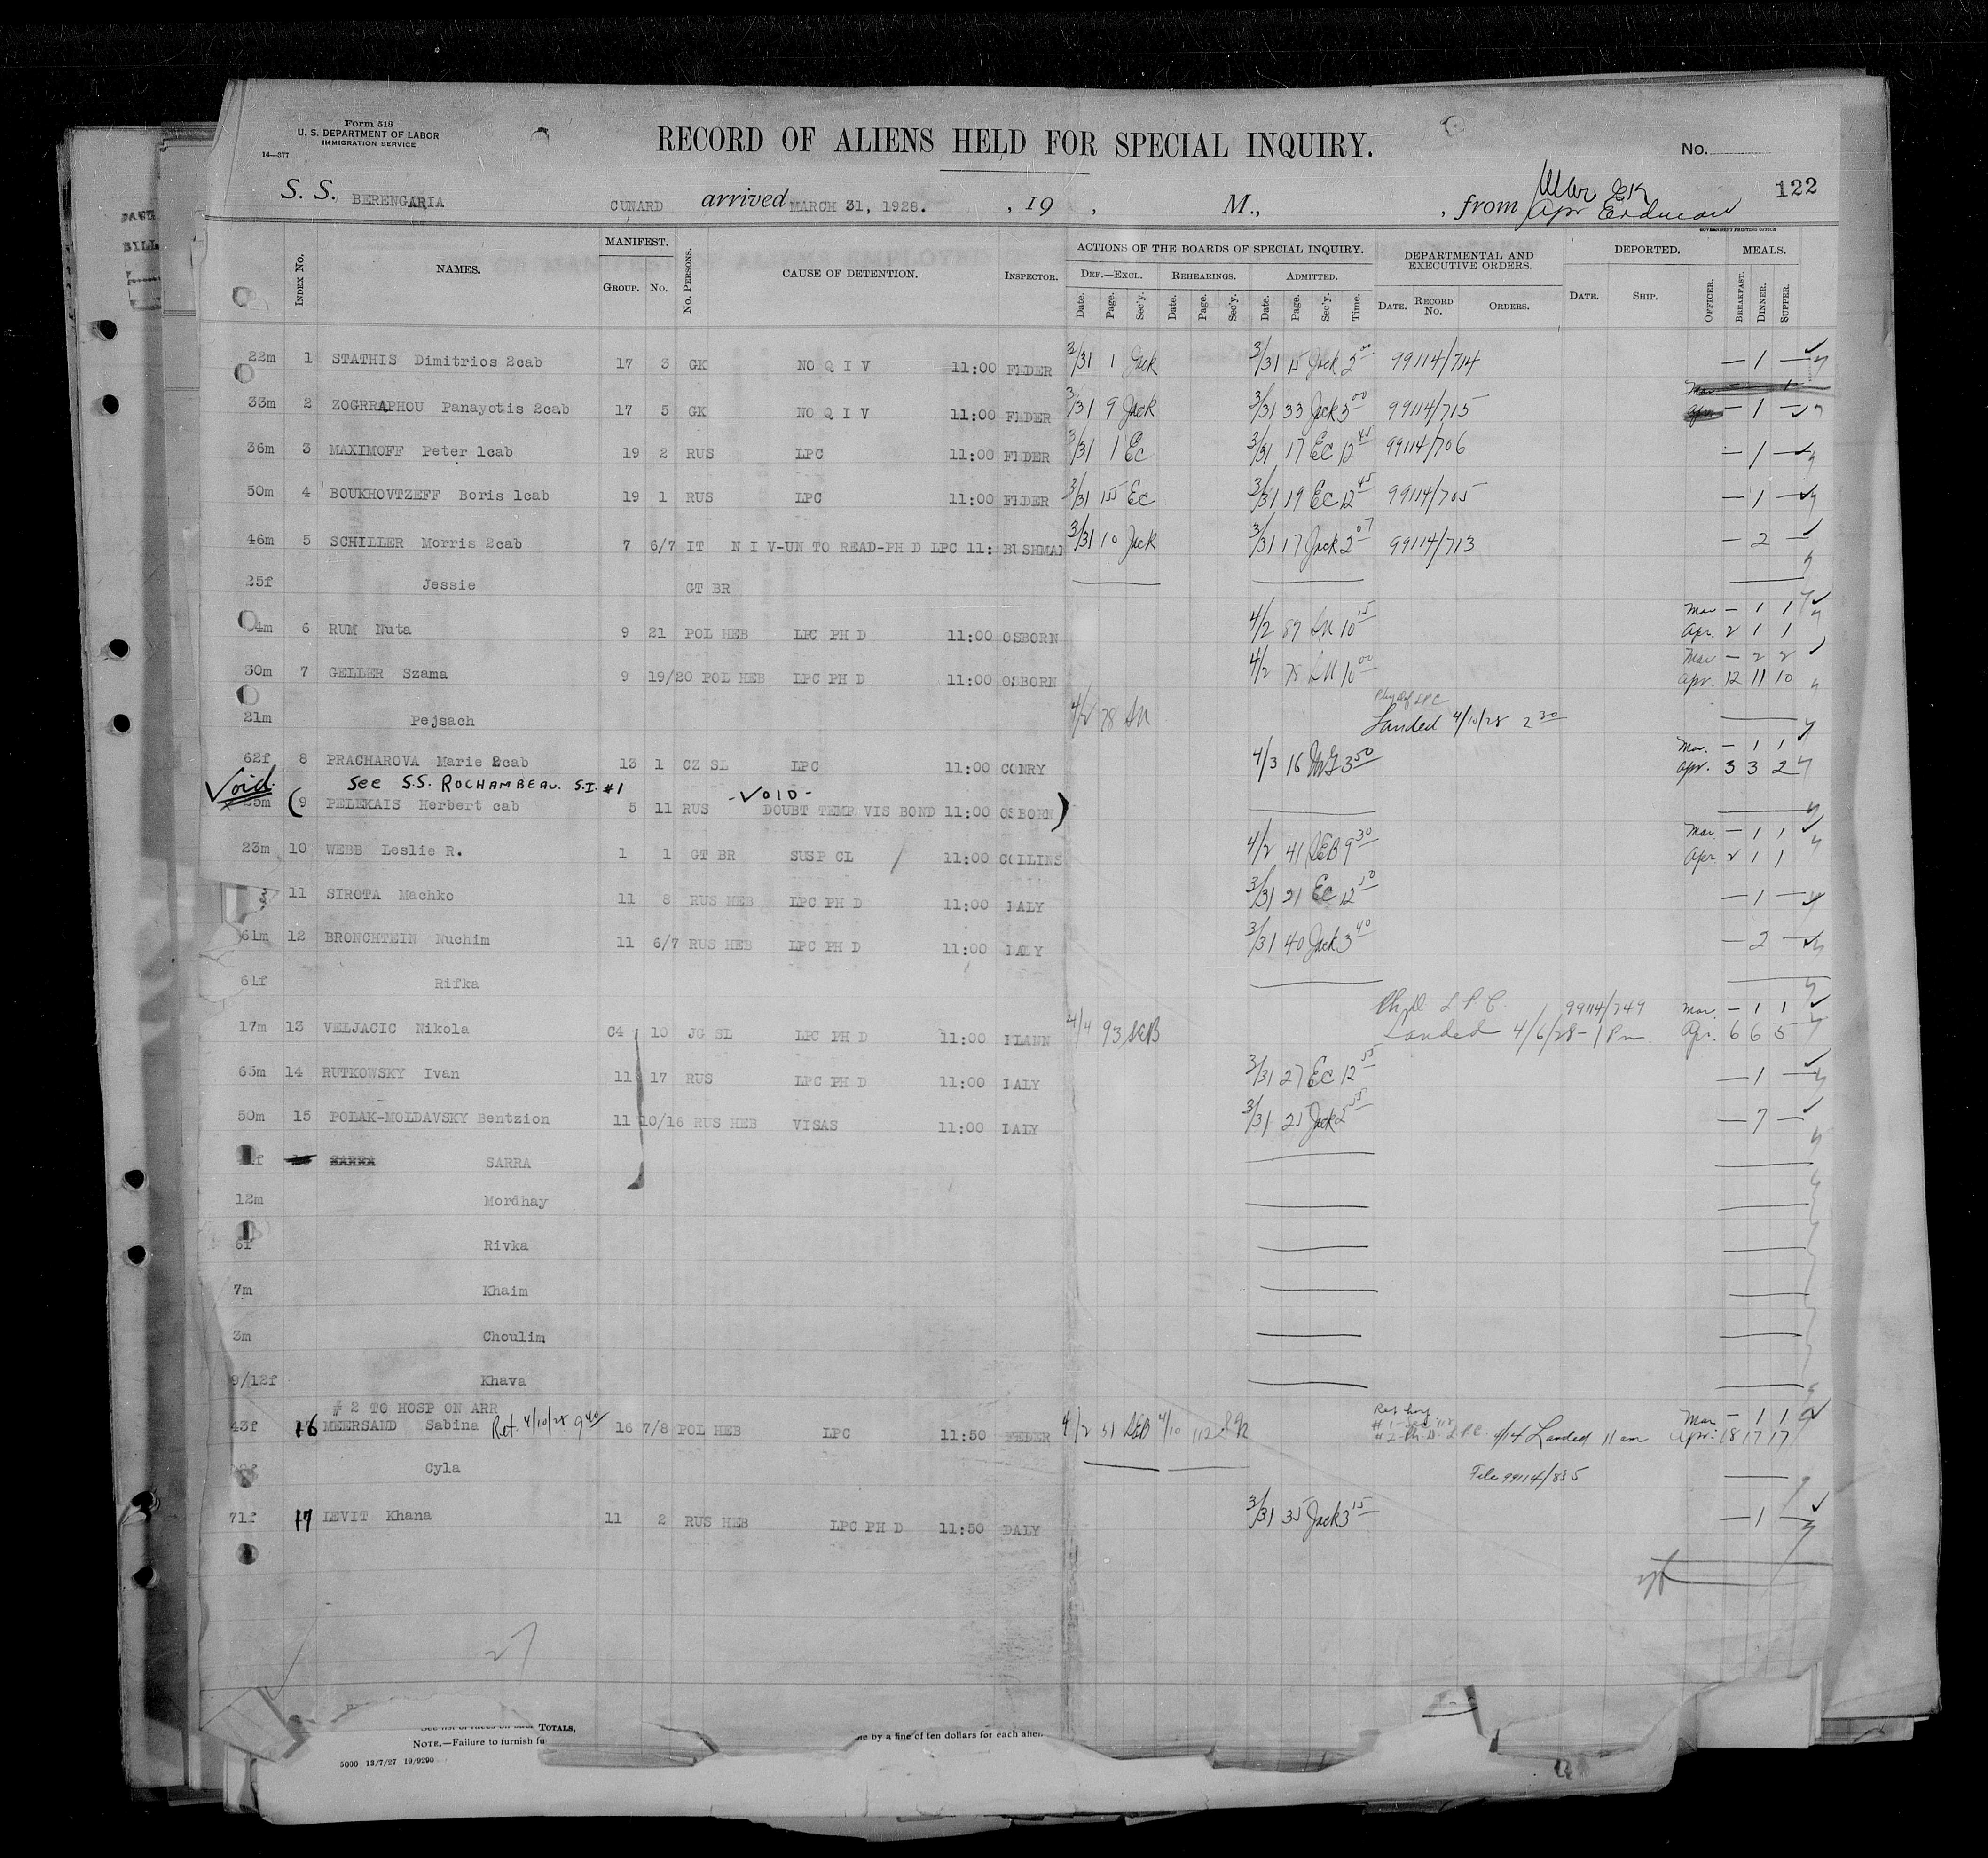 Form 518
U. S. DEPARTMENT OF LABOR
IMMIGRATION SERVICE
14—377
RECORD OF ALIENS HELD FOR SPECIAL INQUIRY.
No.
122
S. S. BERENGARIA CUNARD arrived MARCH 31, 1928. , 19 , M., , from
Apr Erdman
GOVERNMENT PRINTING OFFICE
INDEX No. NAMES. MANIFEST. GROUP. No. No. PERSONS. CAUSE OF DETENTION. INSPECTOR. ACTIONS OF THE BOARDS OF SPECIAL INQUIRY. DEPARTMENTAL AND EXECUTIVE ORDERS. DEPORTED. MEALS.
DEF.—EXCL. REHEARINGS. ADMITTED.
Date. Page. Sec'y. Date. Page. Sec'y. Date. Page. Sec'y. Time. DATE. RECORD No. ORDERS. DATE. SHIP. OFFICER. BREAKFAST. DINNER. SUPPER.
22m 1 STATHIS Dimitrios 2cab 17 3 GK NO Q I V 11:00 FEDER 3/31 1 Jack 3/31 15 Jack 2 00 99114/714 — 1 —
33m 2 ZOGRRAPHOU Panayotis 2cab 17 5 GK NO Q I V 11:00 FEDER 3/31 9 Jack 3/31 33 Jack 3 00 99114/715 — 1 —
36m 3 MAXIMOFF Peter 1cab 19 2 RUS LPC 11:00 FEDER 3/31 1 Ec 3/31 17 Ec 12 45 99114/706 — 1 —
50m 4 BOUKHOVTZEFF Boris 1cab 19 1 RUS LPC 11:00 FEDER 3/31 155 Ec 3/31 19 Ec 12 45 99114/705 — 1 —
46m 5 SCHILLER Morris 2cab 7 6/7 IT N I V-UN TO READ-PH D LPC 11: BUSHMAN 3/31 10 Jack 3/31 17 Jack 2 07 99114/713 — 2 —
25f Jessie GT BR
4m 6 RUM Nuta 9 21 POL HEB LPC PH D 11:00 OSBORN 4/2 87 10 15 Mar — 1 1
Apr. 2 1 1
30m 7 GELLER Szama 9 19/20 POL HEB LPC PH D 11:00 OSBORN 4/2 78 10 00 Mar — 2 2
Apr. 12 11 10
21m Pejsach 4/2 78 Landed 4/10/28 2 30
62f 8 PRACHAROVA Marie 2cab 13 1 CZ SL LPC 11:00 CONRY 4/3 16 McG 3 50 Mar. — 1 1
Apr. 3 3 2
Void See S.S. ROCHAMBEAU. S.I. #1 -VOID-
(9 PELEKAIS Herbert cab 5 11 RUS DOUBT TEMP VIS BOND 11:00 OSBORN)
23m 10 WEBB Leslie R. 1 1 GT BR SUSP CL 11:00 COLLINS 4/2 41 SEB 9 30 Mar. — 1 1
Apr. 2 1 1
11 SIROTA Machko 11 8 RUS HEB LPC PH D 11:00 DALY 3/31 21 Ec 12 50 — 1 —
61m 12 BRONCHTEIN Nuchim 11 6/7 RUS HEB LPC PH D 11:00 DALY 3/31 40 Jack 3 40 — 2 —
61f Rifka
Ph D L P C 99114/749 Mar. — 1 1
17m 13 VELJACIC Nikola C4 10 JG SL LPC PH D 11:00 4/4 93 SEB Landed 4/6/28 - 1 Pm Apr. 6 6 5
65m 14 RUTKOWSKY Ivan 11 17 RUS LPC PH D 11:00 DALY 3/31 27 Ec 12 55 — 1 —
50m 15 POLAK-MOLDAVSKY Bentzion 11 10/16 RUS HEB VISAS 11:00 DALY 3/31 25 Jack 2 55 — 7 —
f SARRA SARRA
12m Mordhay
6f Rivka
7m Khaim
3m Choulim
9/12f Khava
# 2 TO HOSP ON ARR
43f 16 MEERSAND Sabina Ret. 4/10/28 9 40 16 7/8 POL HEB LPC 11:50 FEDER 4/2 51 SEB 4/10 112 4/14 Landed 11 am Mar — 1 1
Apr. 18 17 17
Cyla File 99114/835
71f 17 LEVIT Khana 11 2 RUS HEB LPC PH D 11:50 DALY 3/31 35 Jack 3 15 — 1 —
TOTALS,
NOTE.—Failure to furnish fu
e by a fine of ten dollars for each alien
5000 13/7/27 19/9290